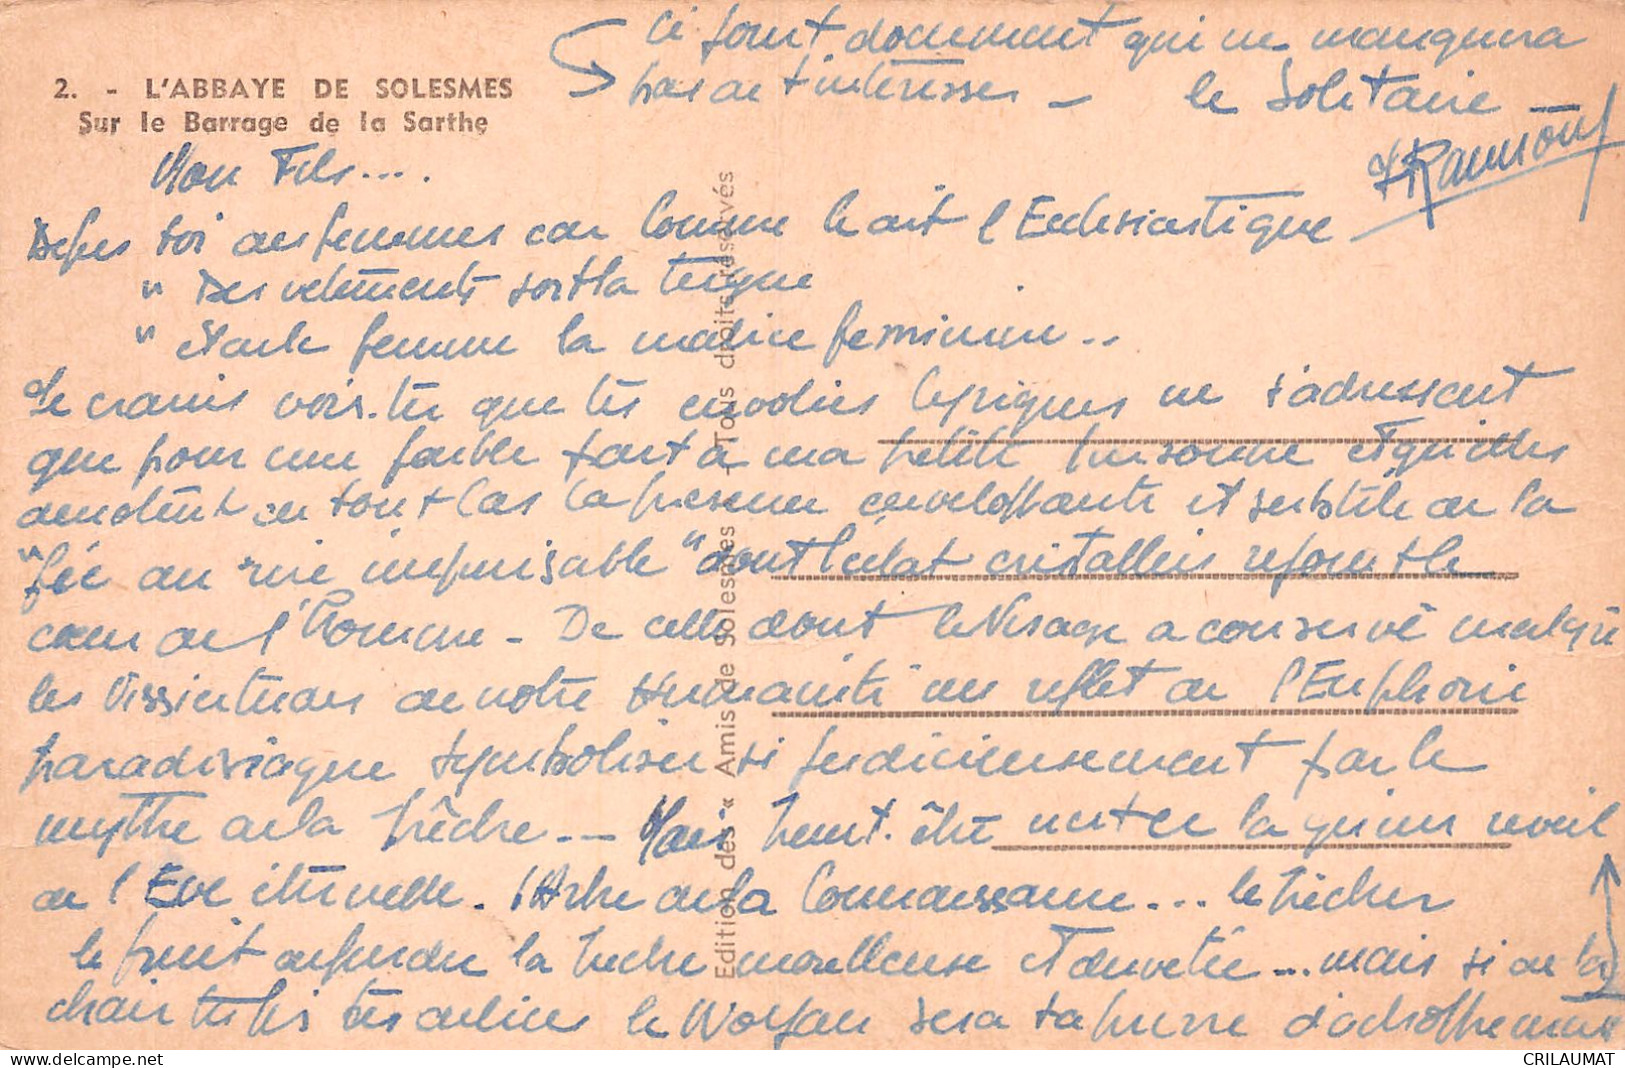 ci joint document qui ne manquera
pas de t'intéresser – le Solitaire –
2. - L'ABBAYE DE SOLESMES
Sur le Barrage de la Sarthe
Mon Fils...
toi des femmes car comme le dit l'Ecclesiastique
" Des vetements sort la teigne
" et de la femme la malice feminine..
Je crains vois-tu que tes envolées lyriques ne s'adressent
que pour une faible part à ma petite personne et qu'elles
denotent en tout cas la presence enveloppante et subtile de la
"fée au rire " dont l'eclat cristallin rejouit le
cœur de l'homme – De celle dont le Visage a conservé malgré
les Vissicitudes de notre Humanité un reflet de l'Euphorie
paradisiaque symbolisée si judicieusement par le
mythe de la Pêche -- Mais peut-être n'est ce la qu'un reveil
de l'Eve éternelle. l'Arbre de la Connaissance... le Pêcher
le fruit defendu la Peche moelleuse et duvetée... mais si de la
chair tu fis tes delices le Noyau sera ta pierre d'achoppement
Edition des « Amis de Solesmes » Tous droits réservés
CRILAUMAT